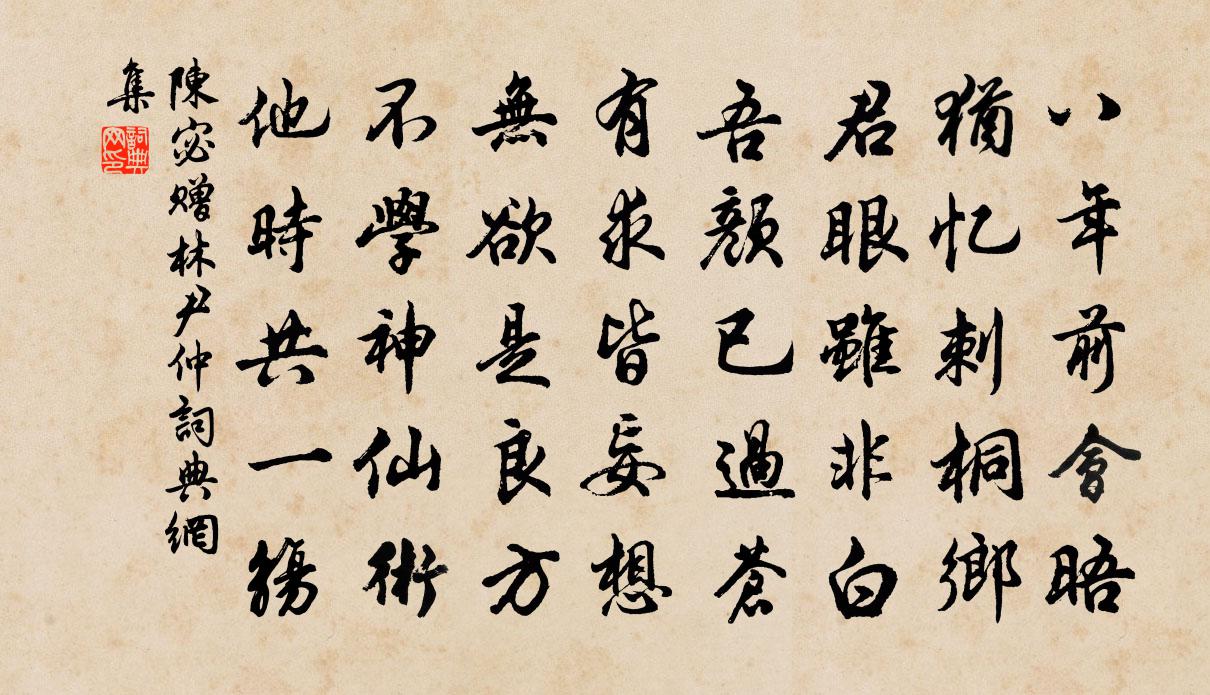 八年前會晤
猶忆刺桐鄉
君眼雖非白
吾顏已過蒼
有求皆妄想
無欲是良方
不學神仙術
他時共一觴
陳宓贈林尹仲詞典網
集
詞典
网印